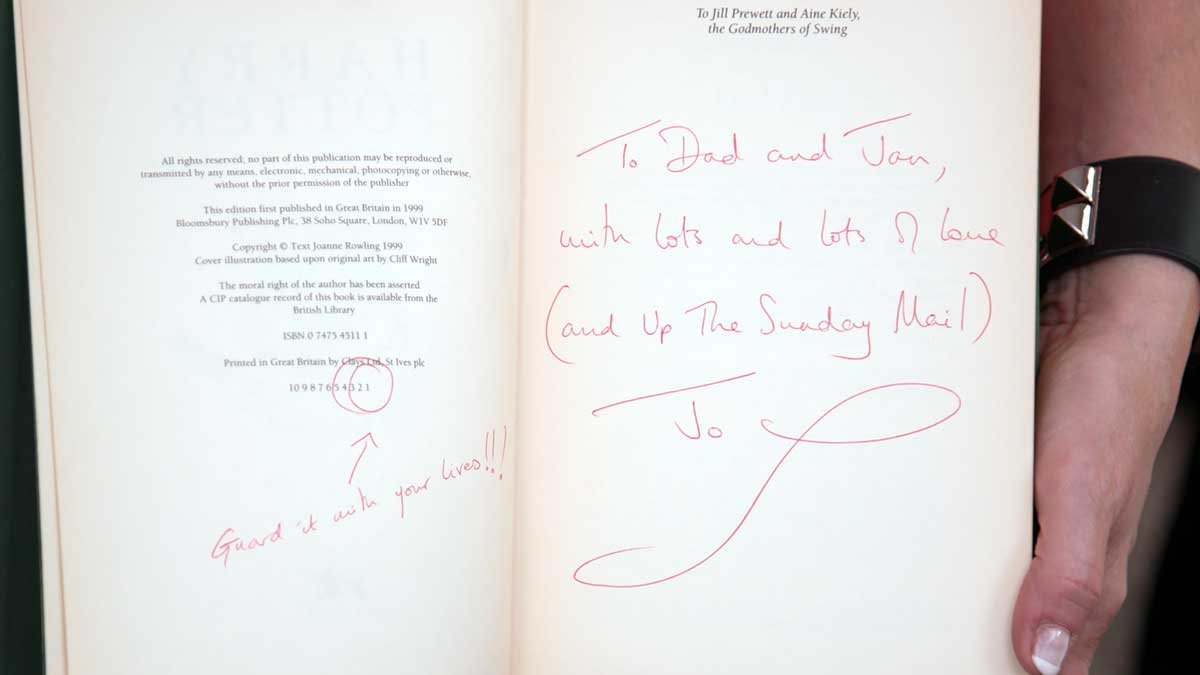 All rights reserved; no part of this publication may be reproduced or
transmitted by any means, electronic, mechanical, photocopying or otherwise,
without the prior permission of the publisher
This edition first published in Great Britain in 1999
Bloomsbury Publishing Plc, 38 Soho Square, London, W1V 5DF
Copyright © Text Joanne Rowling 1999
Cover illustration based upon original art by Cliff Wright
The moral right of the author has been asserted
A CIP catalogue record of this book is available from the
British Library
ISBN 0 7475 4511 1
Printed in Great Britain by Clays Ltd, St Ives plc
10 9 8 7 6 5 4 3 2 1
Guard it with your lives!!!
To Jill Prewett and Aine Kiely,
the Godmothers of Swing
To Dad and Jan,
with lots and lots of love
(and Up The Sunday Mail)
Jo